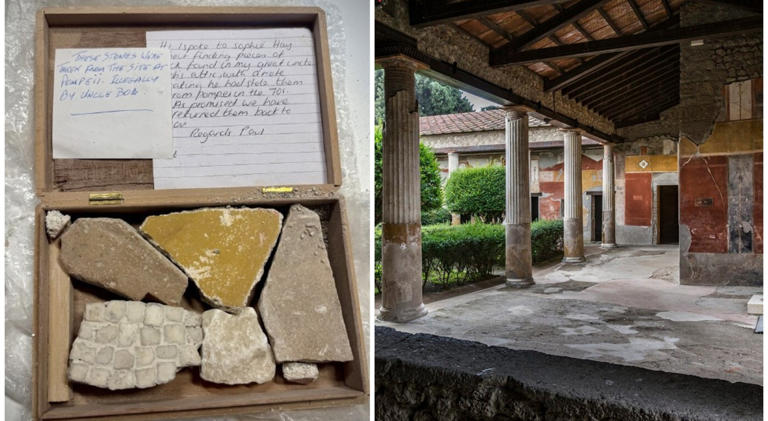 THESE STONES WERE
TAKEN FROM THE SITE AT
POMPEII. ILLEGALLY
BY UNCLE BOB.
Hi I spoke to Sophie Hay
finding pieces of
found in my great uncle
his attic, with a note
he had stole them
from pompei in the 70s.
As promised we have
returned them back to
Regards Paul